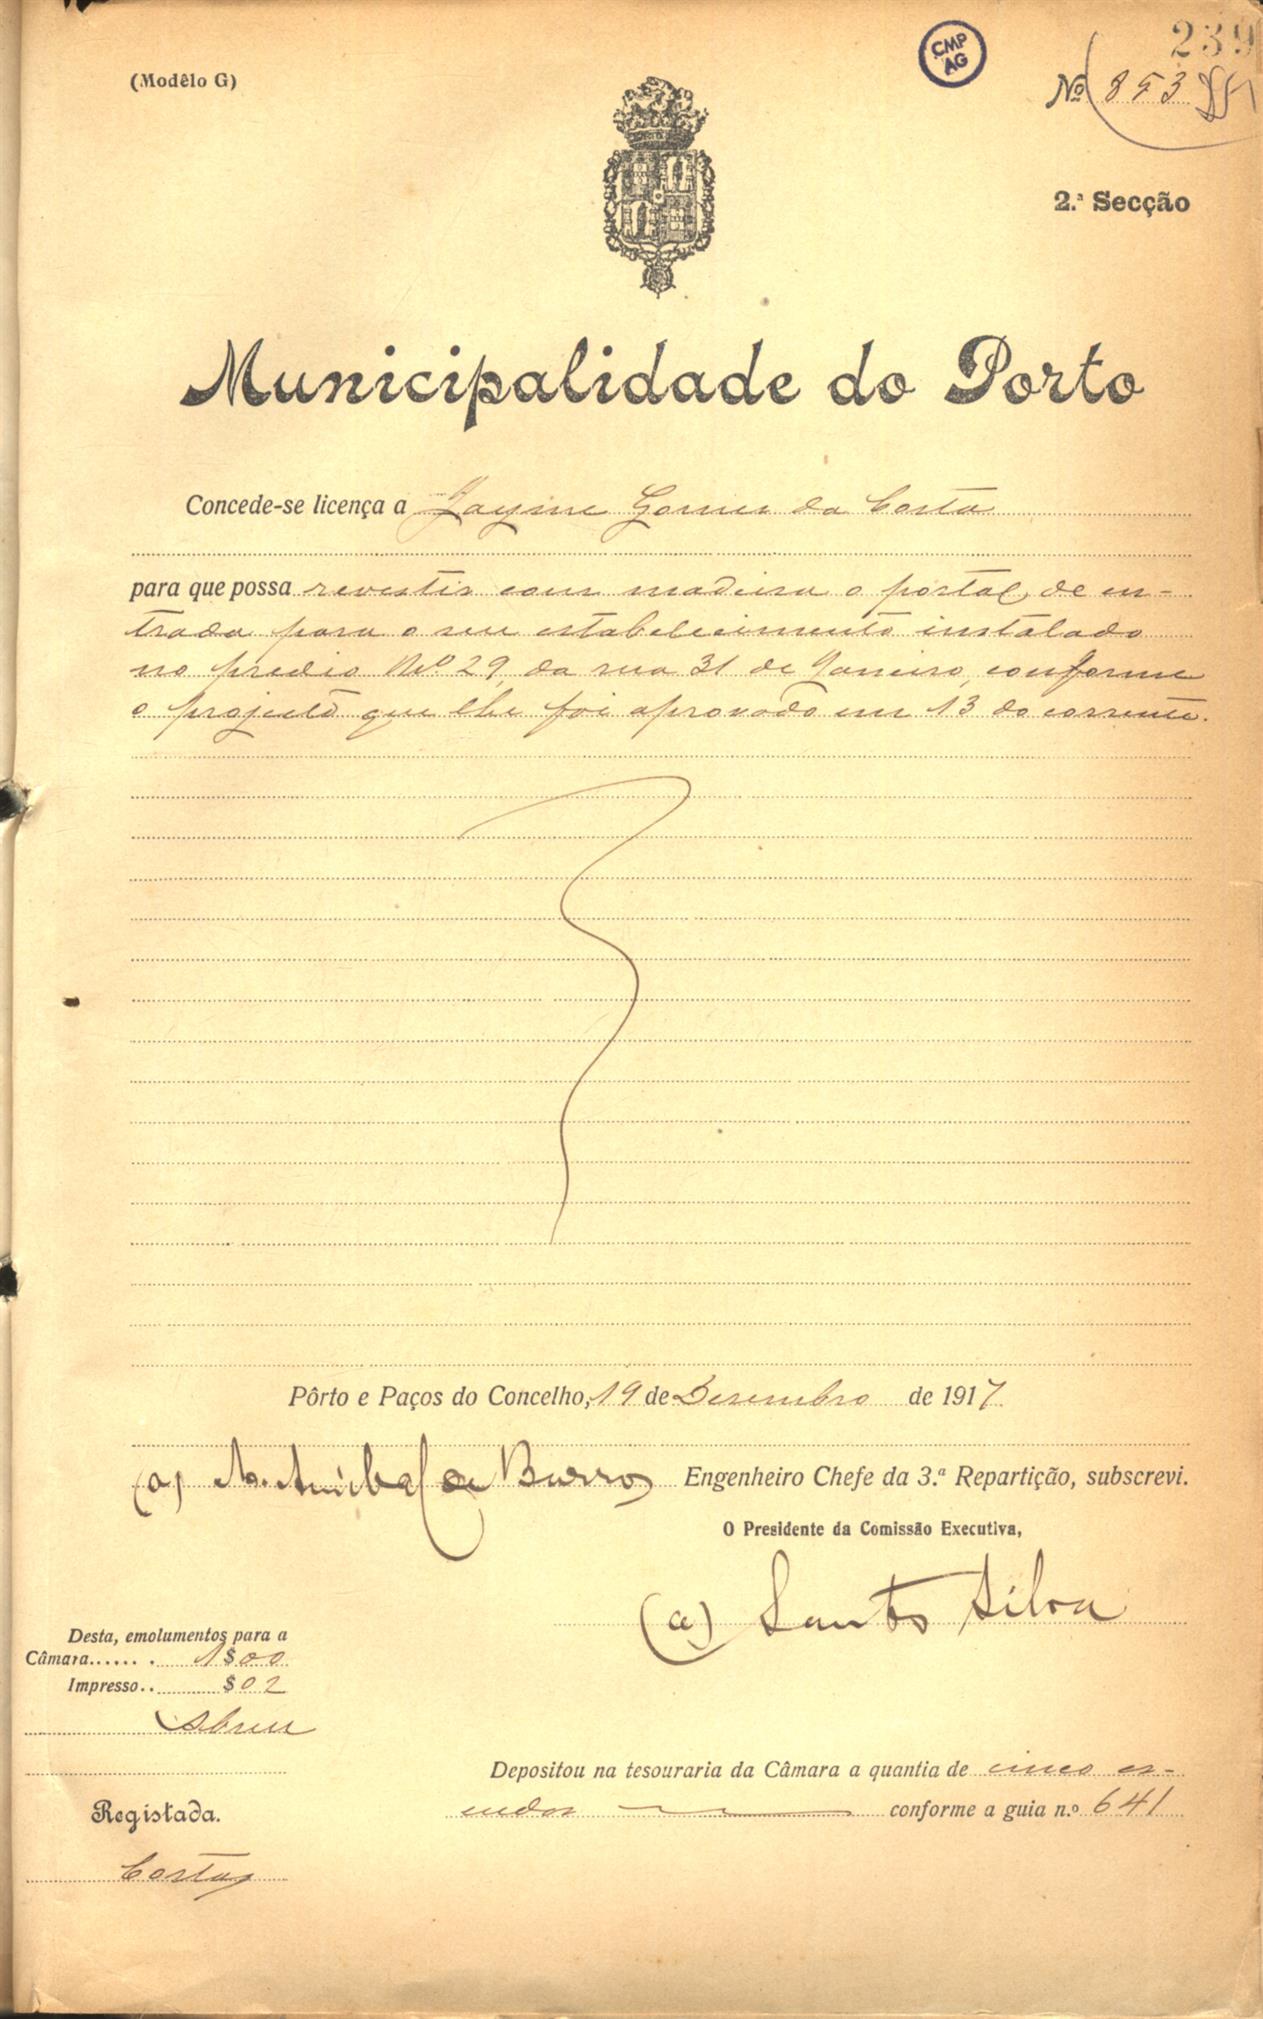 239
CMP
AG
(Modêlo G)
Nº 853
2.ª Secção
Municipalidade do Porto
Concede-se licença a Jayme Gomes da Costa
para que possa revestir com madeira o portal de en-
trada para o seu estabelecimento instalado
no predio Nº 29, da rua 31 de Janeiro, conforme
o projecto que lhe foi aprovado em 13 do corrente.
Pôrto e Paços do Concelho, 19 de Dezembro de 1917
(a) A. Anibal de Barros Engenheiro Chefe da 3.ª Repartição, subscrevi.
O Presidente da Comissão Executiva,
(a) Santos Silva
Desta, emolumentos para a
Câmara...... . 1$00
Impresso.. $02
Abreu
Depositou na tesouraria da Câmara a quantia de cinco es-
cudos conforme a guia n.º 641
Registada.
Costa